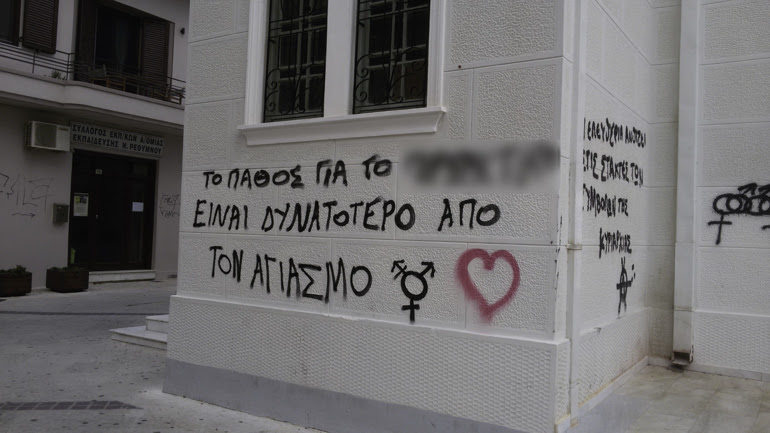 ΣΥΛΛΟΓΟΣ ΕΚΠ/ΚΩΝ Α/ΘΜΙΑΣ
ΕΚΠΑΙΔΕΥΣΗΣ Ν. ΡΕΘΥΜΝΟΥ
ΤΟ ΠΑΘΟΣ ΓΙΑ ΤΟ
ΕΙΝΑΙ ΔΥΝΑΤΟΤΕΡΟ ΑΠΟ
ΤΟΝ ΑΓΙΑΣΜΟ
Η ΕΛΕΥΘΕΡΙΑ ΑΝΘΙΖΕΙ
ΣΤΙΣ ΣΤΑΧΤΕΣ ΤΩΝ
ΣΥΜΒΟΛΩΝ ΤΗΣ
ΚΥΡΙΑΡΧΙΑΣ